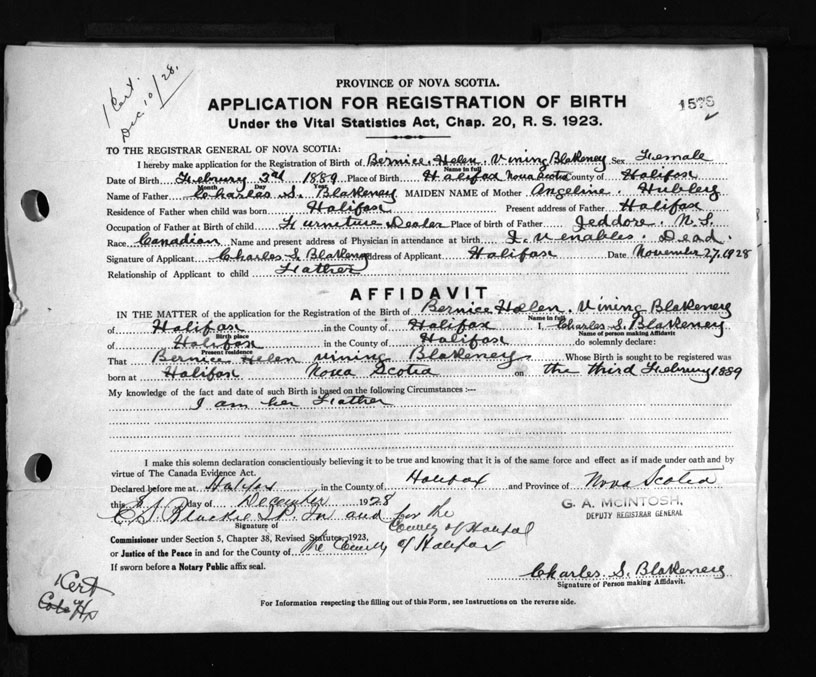 1 Cert.
Dec. 10/28.
PROVINCE OF NOVA SCOTIA.
APPLICATION FOR REGISTRATION OF BIRTH
1575
Under the Vital Statistics Act, Chap. 20, R. S. 1923.
TO THE REGISTRAR GENERAL OF NOVA SCOTIA:
I hereby make application for the Registration of Birth of Bernice. Helen. Vining Blakeney Sex Female
Name in full
Date of Birth Februry 3rd 1889 Place of Birth Halifax Nova Scotia County of Halifax
Month Day Year
Name of Father Charles S. Blakeney MAIDEN NAME of Mother Angeline. Hubley
Residence of Father when child was born Halifax Present address of Father Halifax
Occupation of Father at Birth of child Furniture Dealer Place of birth of Father Jeddore. N.S.
Race Canadian Name and present address of Physician in attendance at birth Venables. Dead.
Signature of Applicant Charles S. Blakeney Address of Applicant Halifax Date November 27, 1928
Relationship of Applicant to child Father
AFFIDAVIT
IN THE MATTER of the application for the Registration of the Birth of Bernice Helen. Vining Blakeney
Name in full
of Halifax in the County of Halifax I, Charles S. Blakeney
Birth place Name of person making Affidavit
of Halifax in the County of Halifax do solemnly declare:
Present residence
That Bernice Helen vining Blakeney Whose Birth is sought to be registered was
born at Halifax Nova Scotia on the third Februry 1889
My knowledge of the fact and date of such Birth is based on the following Circumstances :—
I am her Father
I make this solemn declaration conscientiously believing it to be true and knowing that it is of the same force and effect as if made under oath and by
virtue of The Canada Evidence Act.
Declared before me at Halifax in the County of Halifax and Province of Nova Scotia
this day of December 1928
G. A. McINTOSH,
DEPUTY REGISTRAR GENERAL
and for the
Signature of County of Halifax
Commissioner under Section 5, Chapter 38, Revised Statutes, 1923,
or Justice of the Peace in and for the County of the County of Halifax
If sworn before a Notary Public affix seal.
Charles. S. Blakeney
Signature of Person making Affidavit.
1 Cert
For Information respecting the filling out of this Form, see Instructions on the reverse side.